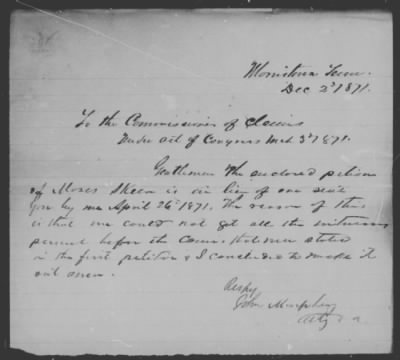 Morristown Tenn.
Dec 2d 1871.
To the Commissioner of Claims
Under act of Congress Mch 3d 1871.
Gentlemen The enclosed petition
of Moses is in lieu of one sent
you by me April 26th 1871. The reason of this
is that we could not get all the witnesses
present before the Comr. that were stated
in the first petition & I concluded to make it
out anew.
Respy
John Murphey
Atty